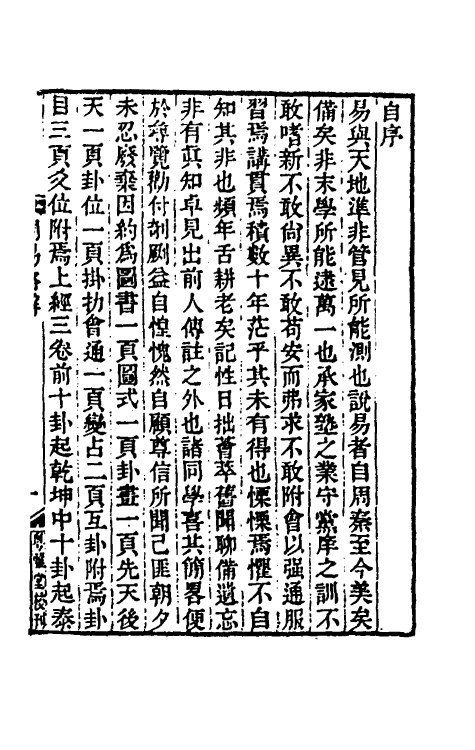 自序
易與天地準非管見所能測也說易者自周秦至今美矣
備矣非末學所能逮萬一也承家塾之業守黨庠之訓不
敢嗜新不敢尙異不敢苟安而弗求不敢附會以强通服
習焉講貫焉積數十年茫乎其未有得也慄慄焉懼不自
知其非也頻年舌耕老矣記性日拙薈萃舊聞聊備遺忘
非有眞知卓見出前人傳註之外也諸同學喜其簡畧便
於尋覽勸付剞劂益自惶愧然自顧尊信所聞已匪朝夕
未忍廢棄因約爲圖書一頁圖式一頁卦畫一頁先天後
天一頁卦位一頁掛扐會通一頁變占二頁互卦附焉卦
目三頁爻位附焉上經三卷前十卦起乾坤中十卦起泰
周易
一
堂校刊